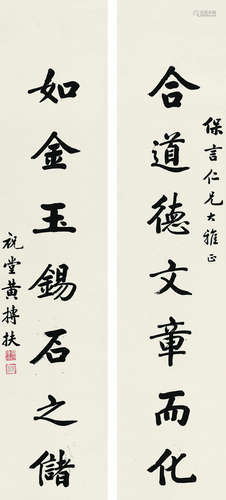 保言仁兄大雅正
合道德文章而化
如金玉錫石之儲
祝堂黃摶扶